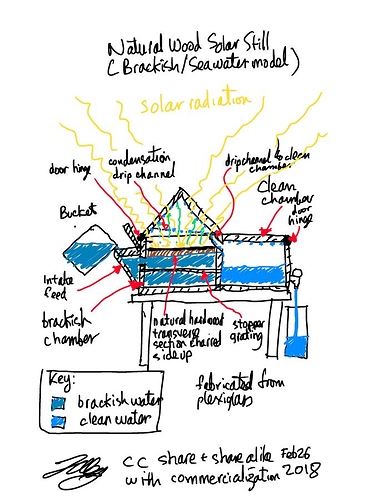 Natural Wood Solar Still
(Brackish/Seawater model)
solar radiation
door hinge
condensation
drip channel
drip channel to clean
chamber
Clean
chamber
door
hinge
Bucket
Intake
feed
brackish
chamber
natural hardwood
transverse
section charred
side up
stopper
grating
fabricated from
plexiglass
Key:
brackish water
clean water
CC share + share alike Feb 26
with commercialization 2018